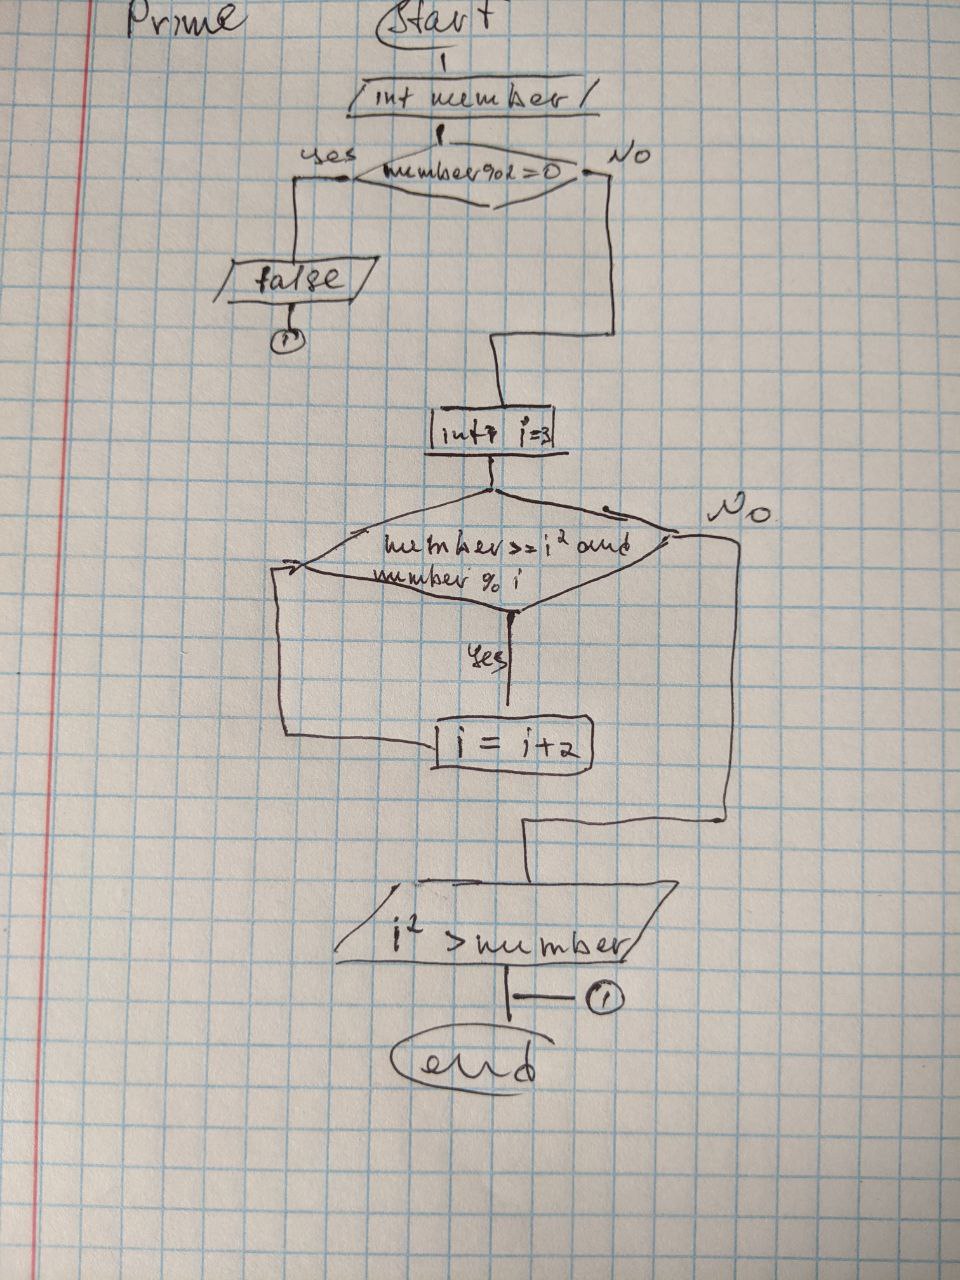 Prime Start
int number
number%2=0
Yes
No
false
1
int i=3
number>=i² and
number % i
No
Yes
i = i+2
i² > number
1
end